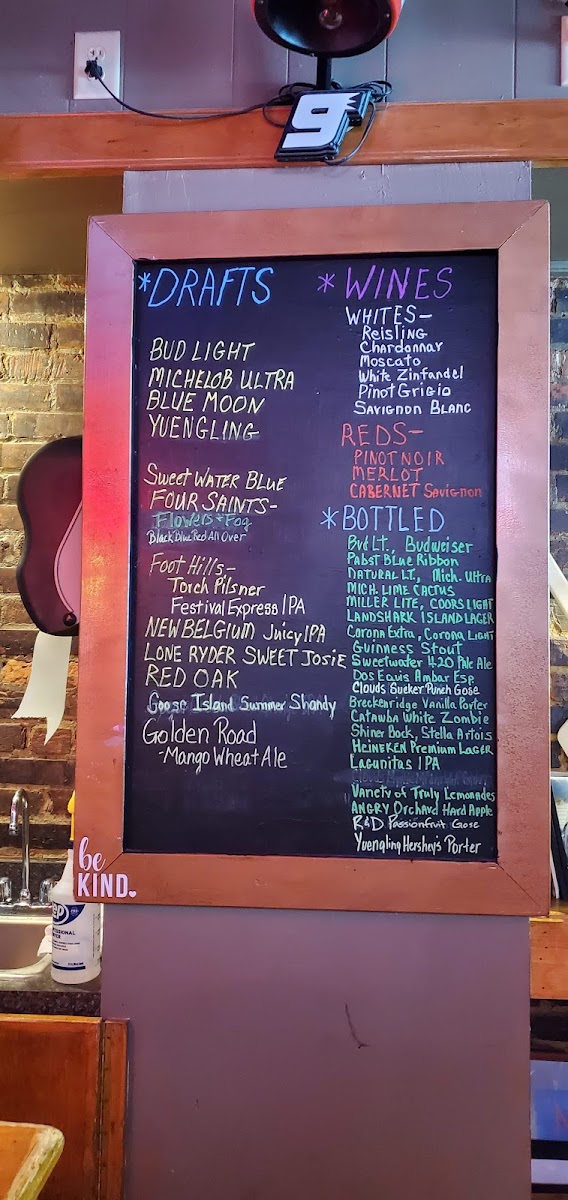 9
*DRAFTS
BUD LIGHT
MICHELOB ULTRA
BLUE MOON
YUENGLING
Sweet WATER BLUE
FOUR SAINTS-
Flowers + Fog
Black, Blue, Red All Over
Foot Hills-
Torch Pilsner
Festival Express IPA
NEW BELGIUM Juicy IPA
LONE RYDER SWEET JOSIE
RED OAK
Goose Island Summer Shandy
Golden Road
-Mango Wheat Ale
*WINES
WHITES-
Reisling
Chardonnay
Moscato
White Zinfandel
Pinot Grigio
SAVIGNON BLANC
REDS-
PINOT NOIR
MERLOT
CABERNET Savignon
*BOTTLED
Bud Lt., Budweiser
Pabst Blue Ribbon
NATURAL LT., Mich. Ultra
MICH. LIME CACTUS
MILLER LITE, COORS LIGHT
LANDSHARK ISLAND LAGER
Corona Extra, Corona LIGHT
Guinness Stout
Sweetwater 420 Pale Ale
Dos Equis Ambar Esp.
Clouds Queker Punch Gose
Breckenridge Vanilla Porter
Catawba White Zombie
Shiner Bock, Stella Artois
HEINEKEN Premium LAGER
Lagunitas IPA
Variety of Truly Lemonades
ANGRY Orchard Hard Apple
R&D Passionfruit Gose
Yuengling Hershey's Porter
be
KIND.